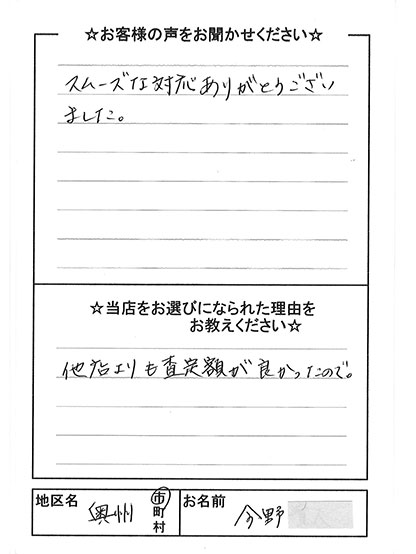 ☆お客様の声をお聞かせください☆
スムーズな対応ありがとうござい
ました。
☆当店をお選びになられた理由を
お教えください☆
他店よりも査定額が良かったので。
地区名 奥州 市町村 お名前 今野